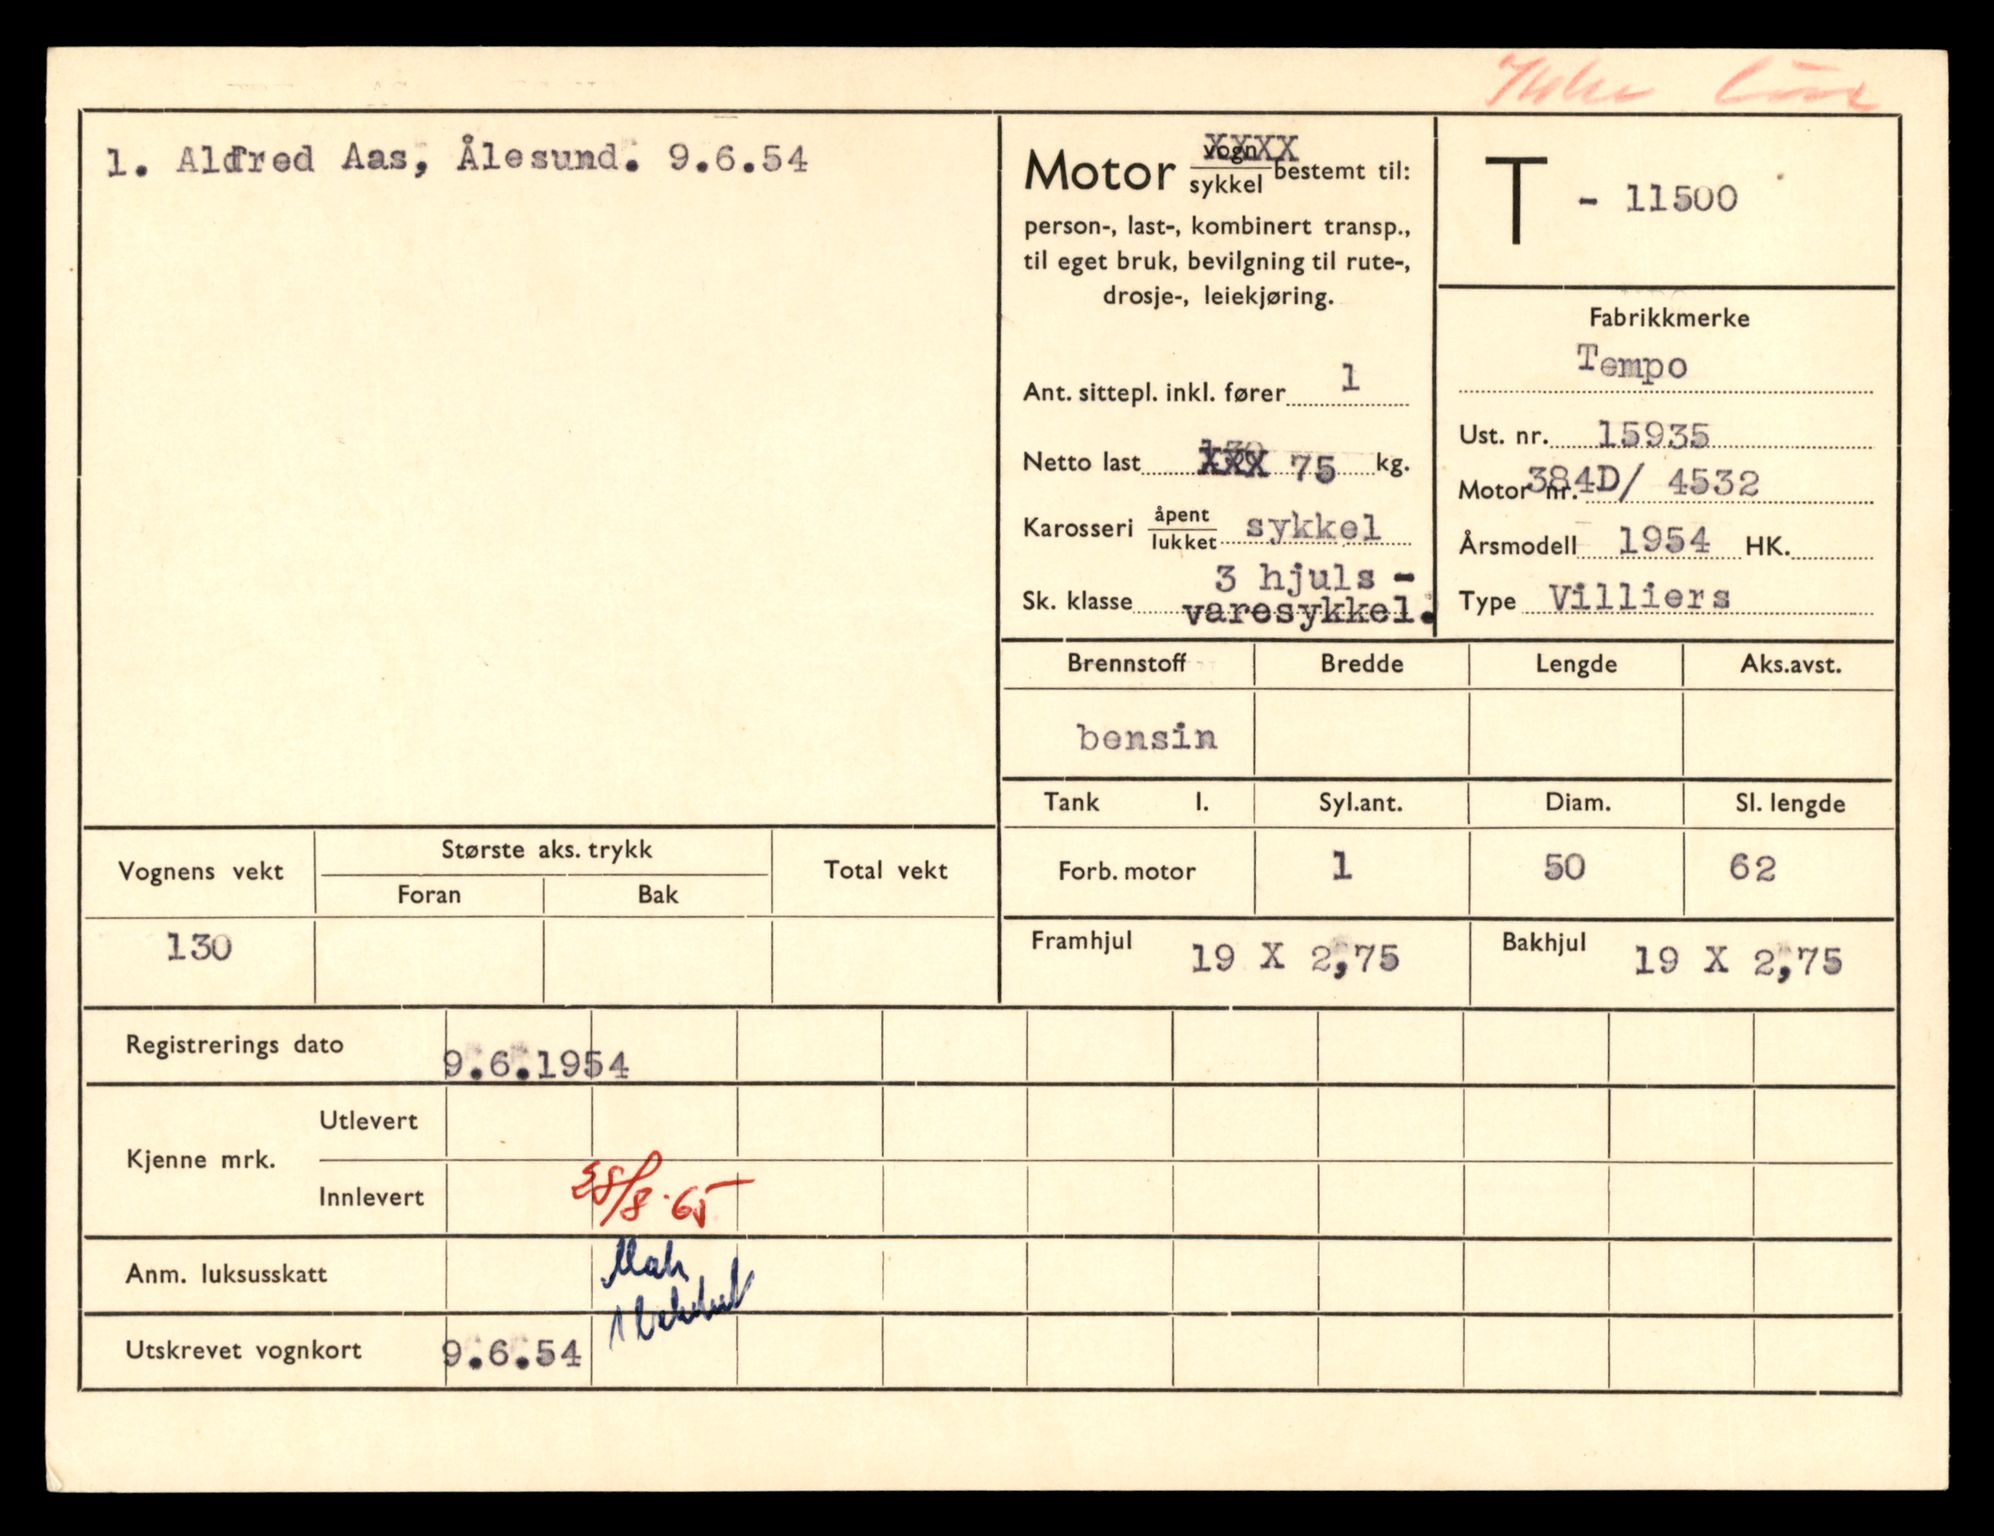 1. Alfred Aas, Ålesund. 9.6.54
Motor vogn/sykkel bestemt til:
person-, last-, kombinert transp.,
til eget bruk, bevilgning til rute-,
drosje-, leiekjøring.
Ant. sittepl. inkl. fører 1
Netto last 130 XXX 75 kg.
Karosseri åpent/lukket sykkel
Sk. klasse 3 hjuls -
varesykkel.
T - 11500
Fabrikkmerke
Tempo
Ust. nr. 15935
Motor nr. 384D/ 4532
Årsmodell 1954 HK.
Type Villiers
Brennstoff Bredde Lengde Aks.avst.
bensin
Tank l. Syl.ant. Diam. Sl. lengde
Forb. motor 1 50 62
Framhjul 19 X 2,75 Bakhjul 19 X 2,75
Vognens vekt Største aks. trykk Total vekt
Foran Bak
130
Registrerings dato 9.6.1954
Kjenne mrk. Utlevert
Innlevert 28/8.65
Anm. luksusskatt
Utskrevet vognkort 9.6.54